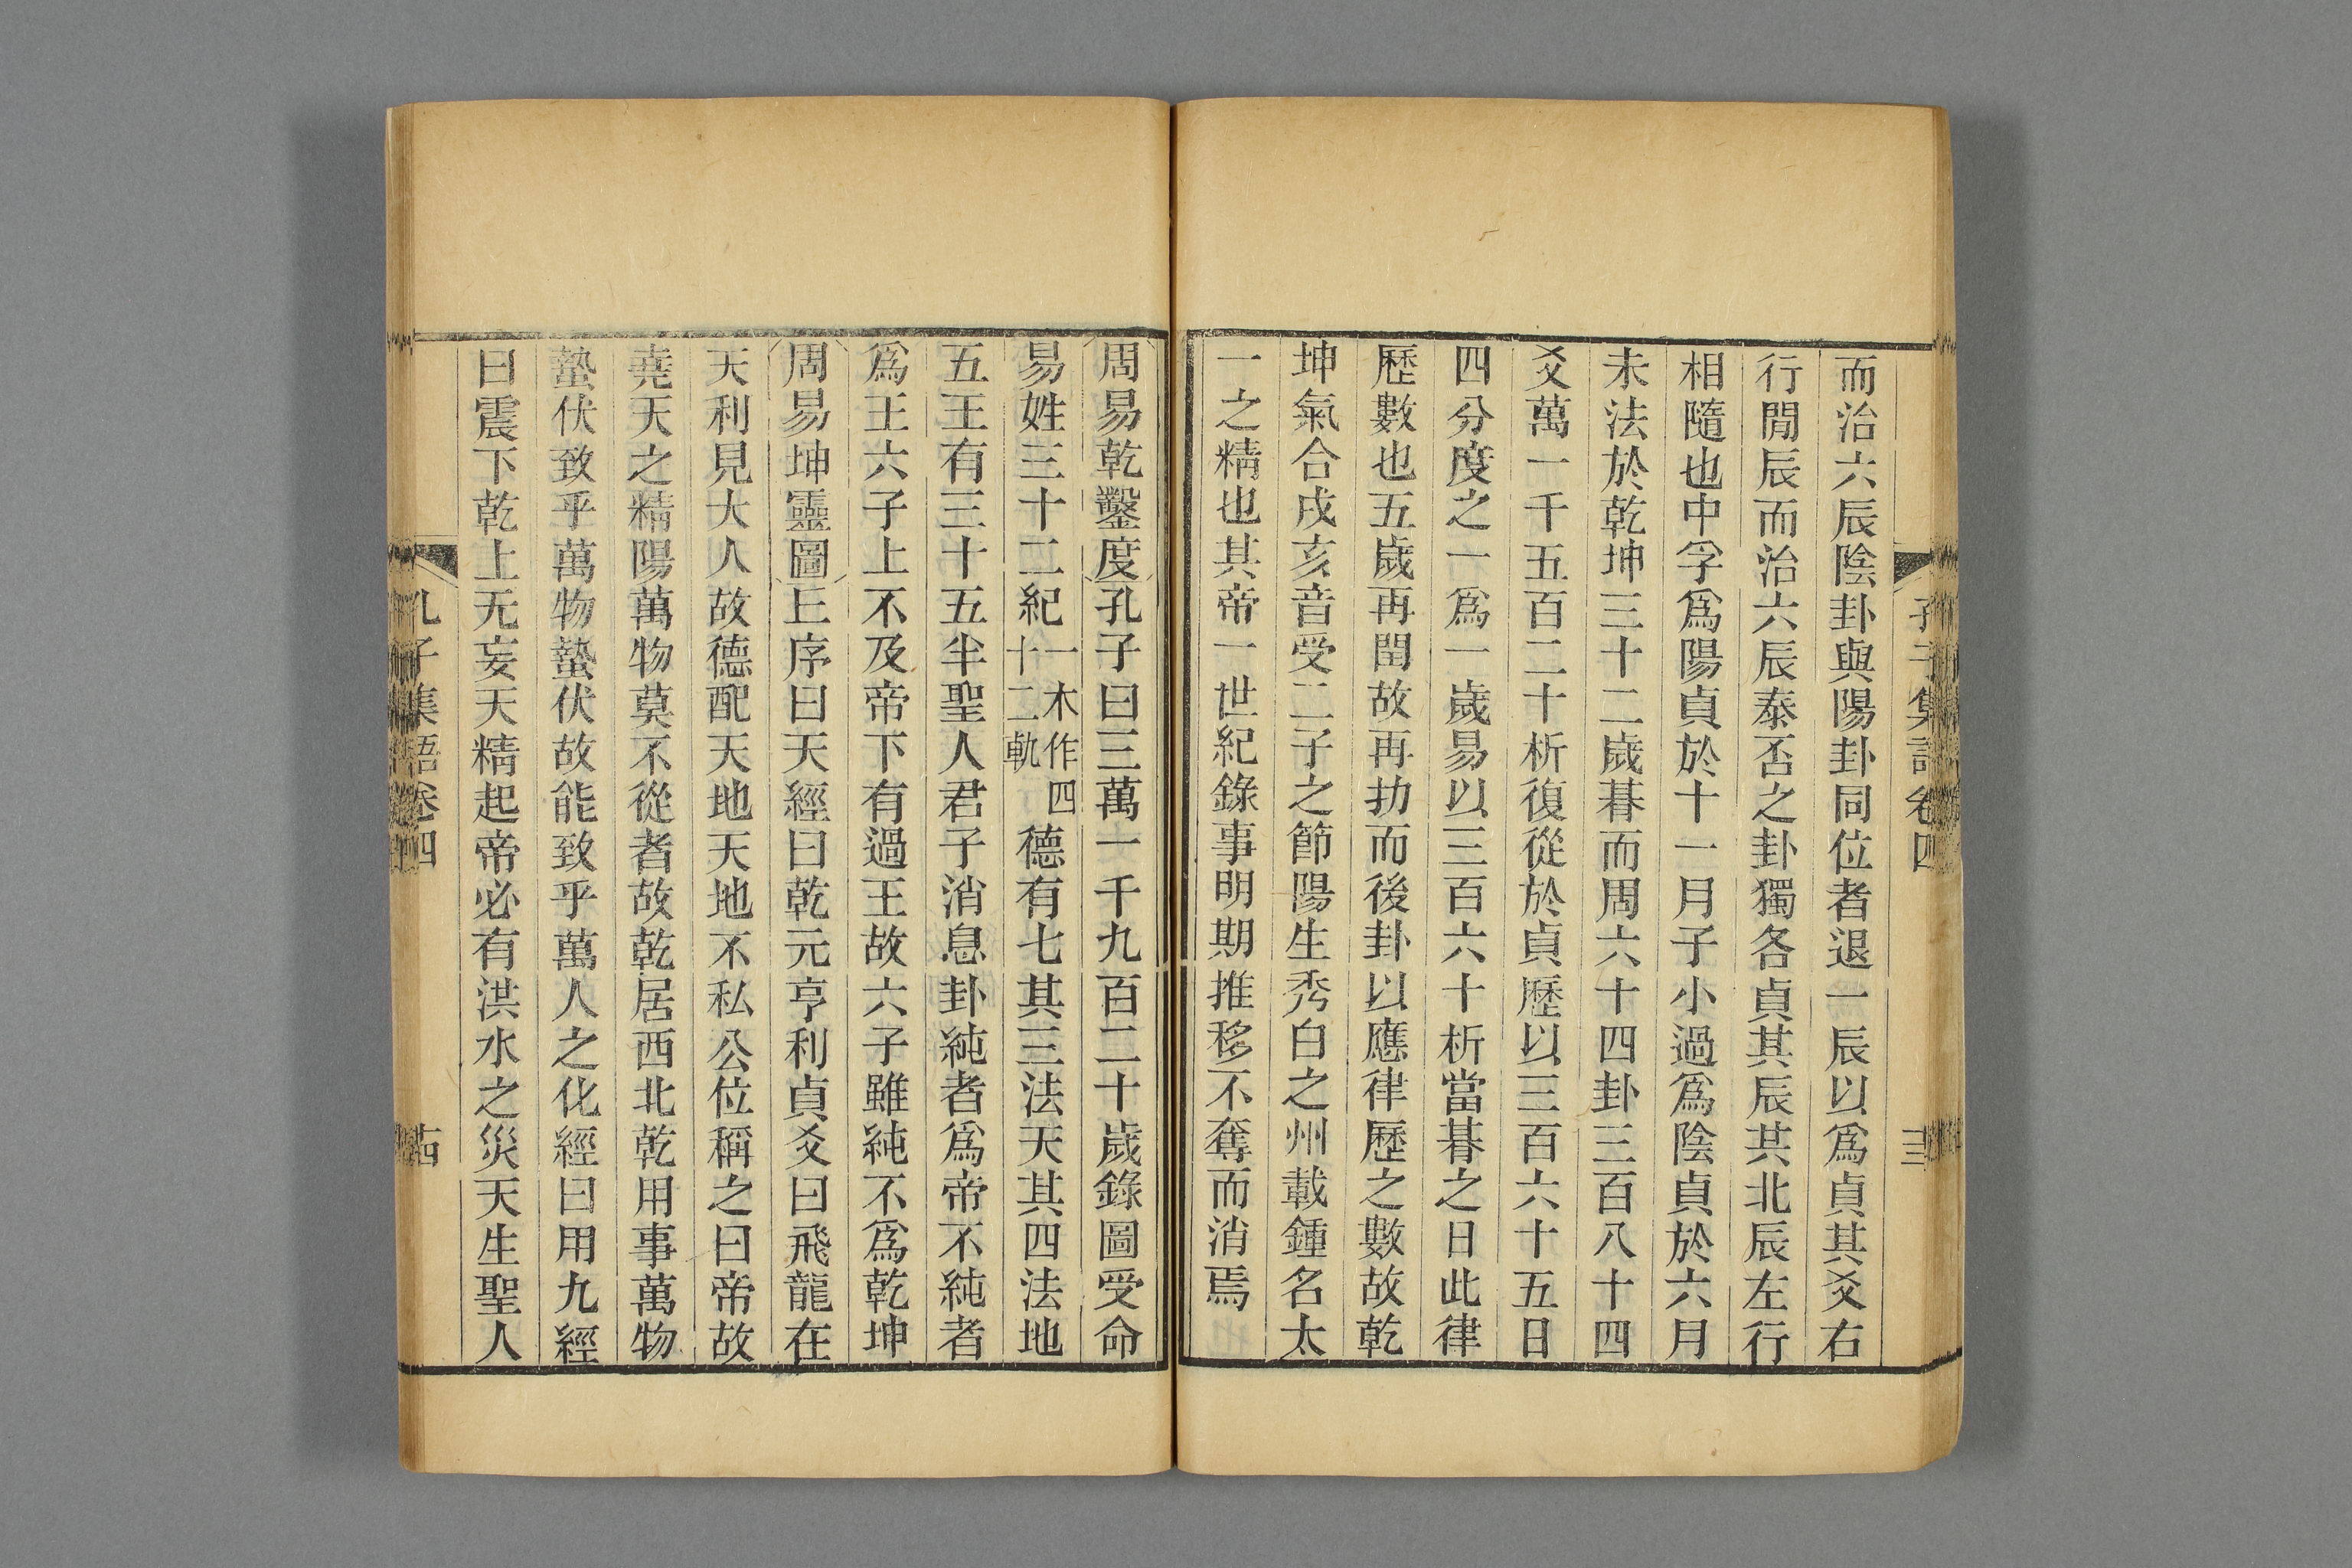 而治六辰陰卦與陽卦同位者退一辰以爲貞其爻右
行閒辰而治六辰泰否之卦獨各貞其辰共北辰左行
相隨也中孚爲陽貞於十一月子小過爲陰貞於六月
未法於乾坤三十二歲朞而周六十四卦三百八十四
爻萬一千五百二十析復從於貞歷以三百六十五日
四分度之一爲一歲易以三百六十析當朞之日此律
歷數也五歲再閏故再扐而後卦以應律歷之數故乾
坤氣合戌亥音受二子之節陽生秀白之州載鍾名太
一之精也其帝一世紀錄事明期推移不奪而消焉
孔子集語卷四
十三
周易乾鑿度孔子曰三萬一千九百二十歲錄圖受命
易姓三十二紀一本作四十二軌德有七其三法天其四法地
五王有三十五半聖人君子消息卦純者爲帝不純者
爲王六子上不及帝下有過王故六子雖純不爲乾坤
周易坤靈圖上序曰天經曰乾元亨利貞爻曰飛龍在
天利見大人故德配天地天地不私公位稱之曰帝故
堯天之精陽萬物莫不從者故乾居西北乾用事萬物
蟄伏致乎萬物蟄伏故能致乎萬人之化經曰用九經
曰震下乾上无妄天精起帝必有洪水之災天生聖人
孔子集語卷四
十四